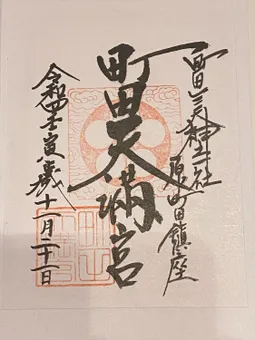 町田三天神社
原町田鎮座
町田天満宮
令和四壬寅歳十一月二十一日